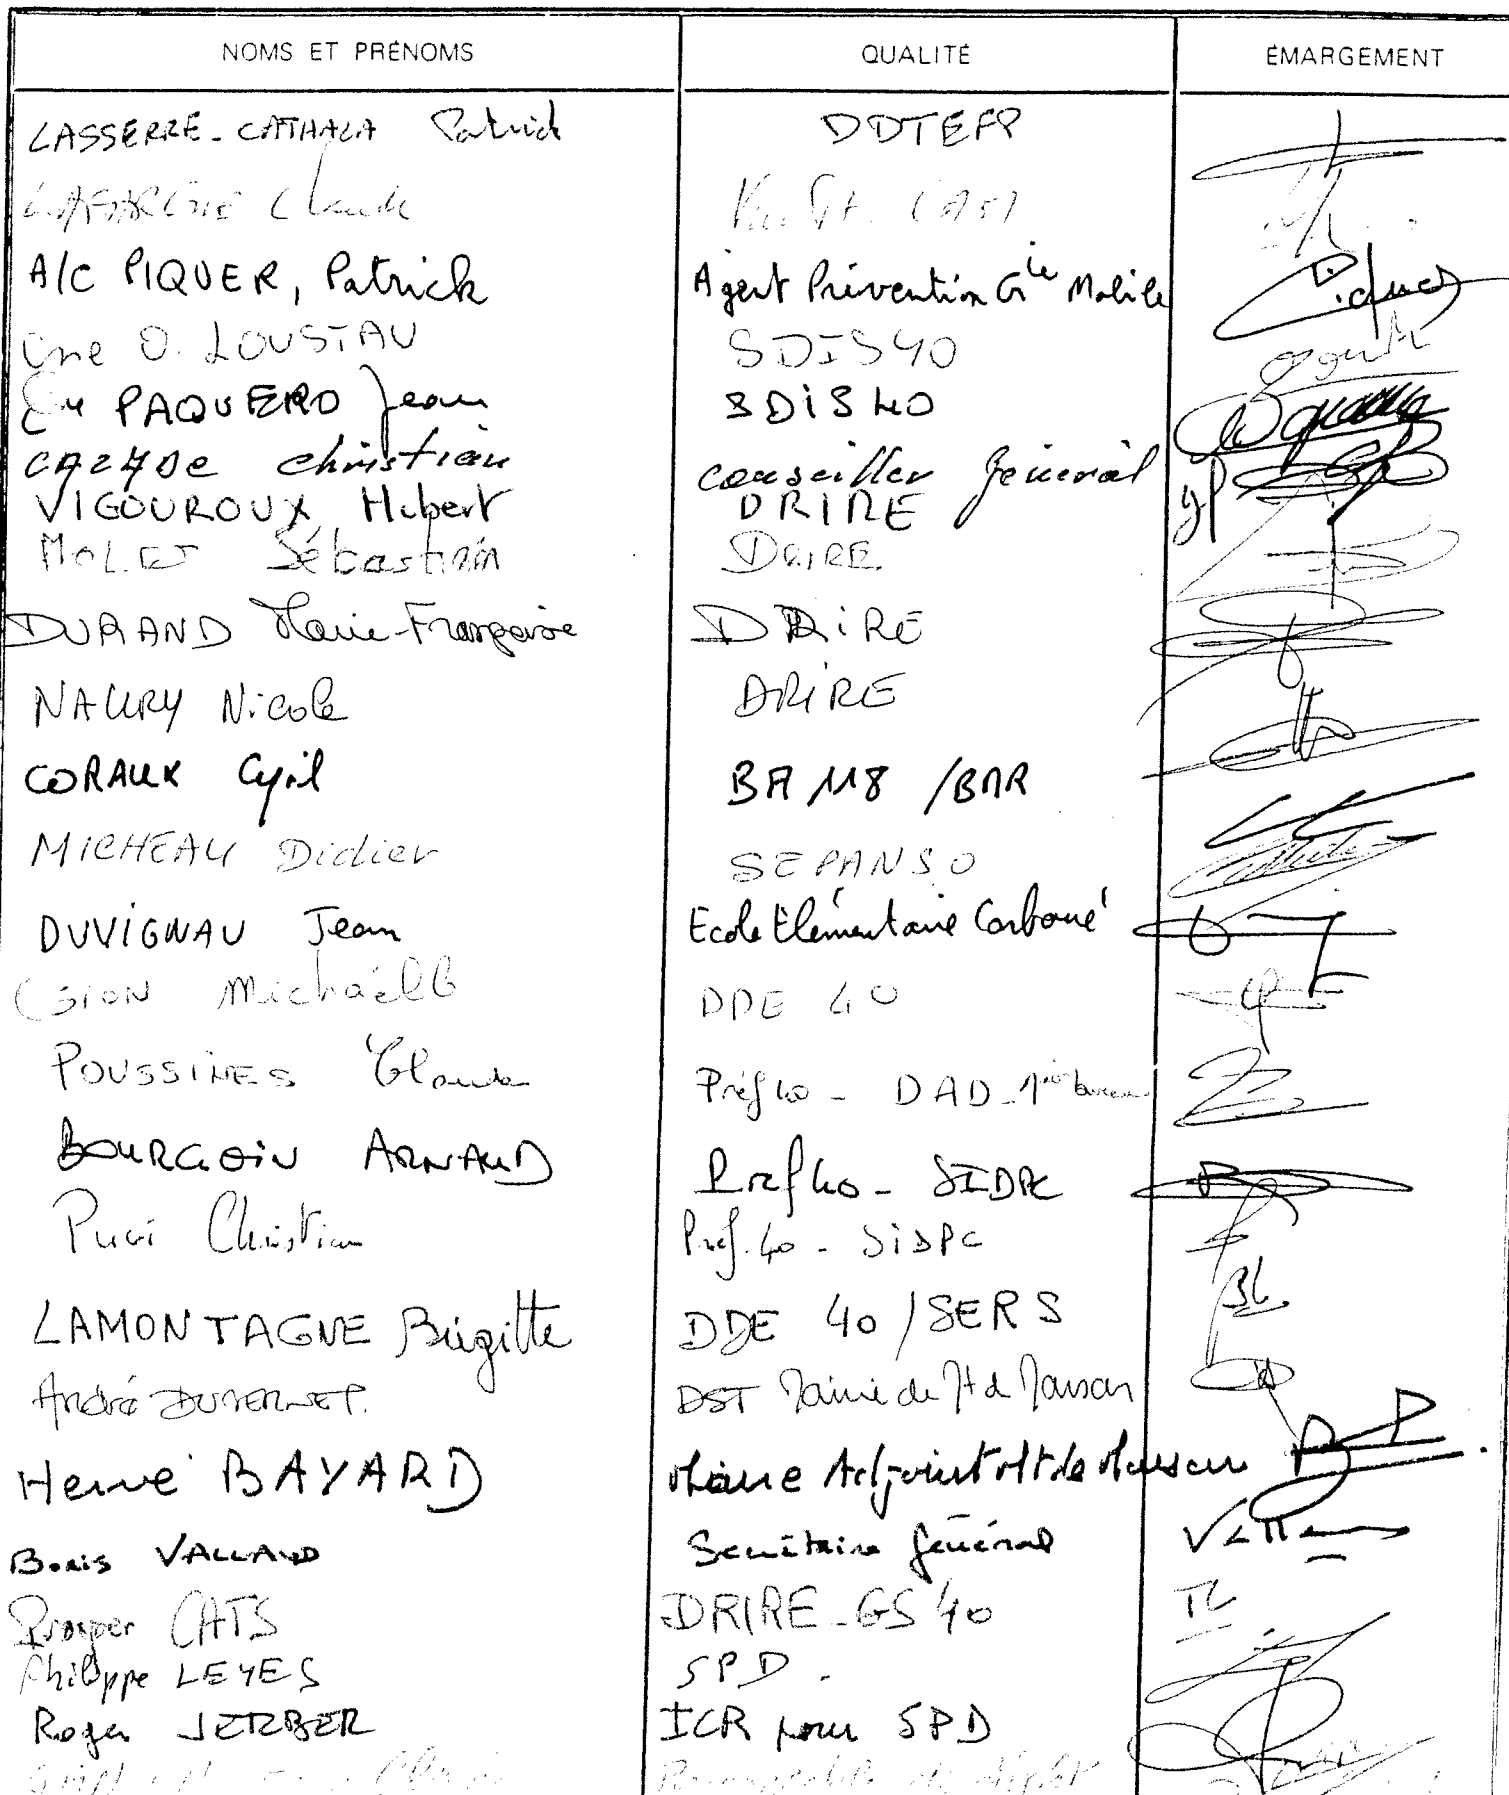 NOMS ET PRÉNOMS QUALITÉ ÉMARGEMENT
LASSERRE-CATHALA Patrick DDTEFP
LAFARGUE Claude
A/C PIQUER, Patrick Agent Prévention Gie Mobile
Cne O. LOUSTAU SDIS40
PAQUERO Jean SDIS 40
CAZADE Christian conseiller général
VIGOUROUX Hubert DRIRE
MOLET Sébastien DRIRE
DURAND Marie-Françoise DRIRE
NAURY Nicole DRIRE
CORAUX Cyril BA 118 /BMR
MICHEAU Didier SEPANSO
DUVIGNAU Jean Ecole Elémentaire Carboué
Michaël DDE 40
POUSSINES Claude Préf 40 - DAD - 1er bureau
BOURGOIN ARNAUD Préf 40 - SIDPC
Christian Préf. 40 - SiDPC
LAMONTAGNE Brigitte DDE 40 / SERS BL
André DUVERNET. DST Mairie de Mt de Marsan
Hervé BAYARD Maire Adjoint Mt de Marsan
Boris VALLAUD Secrétaire général
Prosper CATS DRIRE-GS 40
Philippe LEYES SPD.
Roger JERBER ICR pour SPD
Responsable de dépôt